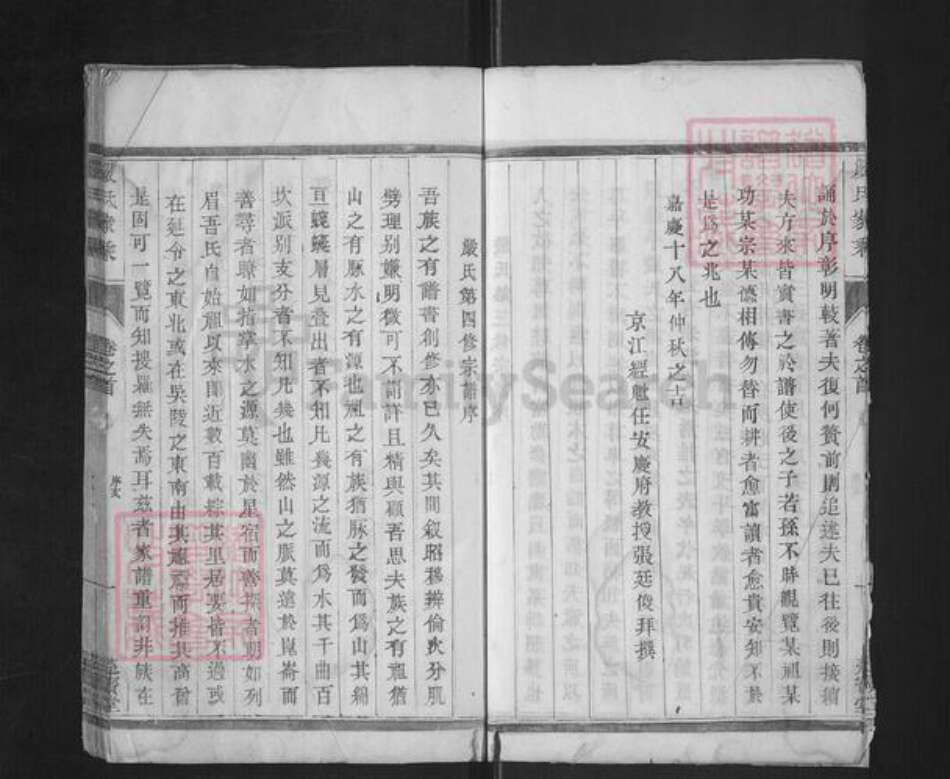 誦於序彰明較著夫復何贅前則追遡夫已往後則接續
夫方來皆實書之於譜使後之子若孫不時觀覽某祖某
功某宗某德相傳勿替而耕者愈富讀者愈貴安知不於
是爲之兆也
嘉慶十八年仲秋之吉
京江經魁任安慶府教授張廷俊拜撰
嚴氏第四修宗譜序
吾族之有譜書創修亦已久矣其間叙昭穆辨倫次分肌
劈理别嫌明微可不謂詳且精與顧吾思夫族之有祖猶
山之有脉水之有源也祖之有族猶脉之發而爲山其綿
亘蜿蜒層見叠出者不知凡幾源之流而爲水其千曲百
坎派别支分者不知凡幾也雖然山之脈莫遠於崑崙而
善尋者瞭如指掌水之源莫幽於星宿而善探者朗如列
眉吾氏自始祖以來閱近數百載綜其里居要皆不過或
在延令之東北或在吳陵之東南由其
是固可一覽而知搜羅無失焉耳茲者家譜重訂非族在
嚴氏家乘
卷之首
序文
FamilySearch